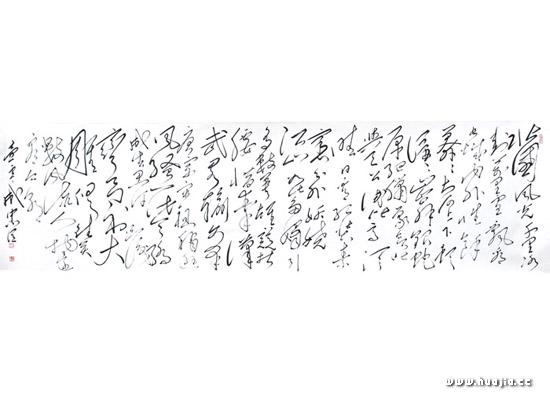 北国风光千里冰
封万里雪飘望
长城内外惟余
莽莽大河上下顿
失滔滔山舞银蛇
原驰蜡象欲
与天公试比高须
晴日看红装素
裹分外妖娆
江山如此多娇引
无数英雄竞折
腰惜秦皇汉
武略输文采
唐宗宋祖稍逊
风骚一代天骄
成吉思汗只识
弯弓射大
雕俱往矣
数风流人物还
看今朝
www.huajia.cc